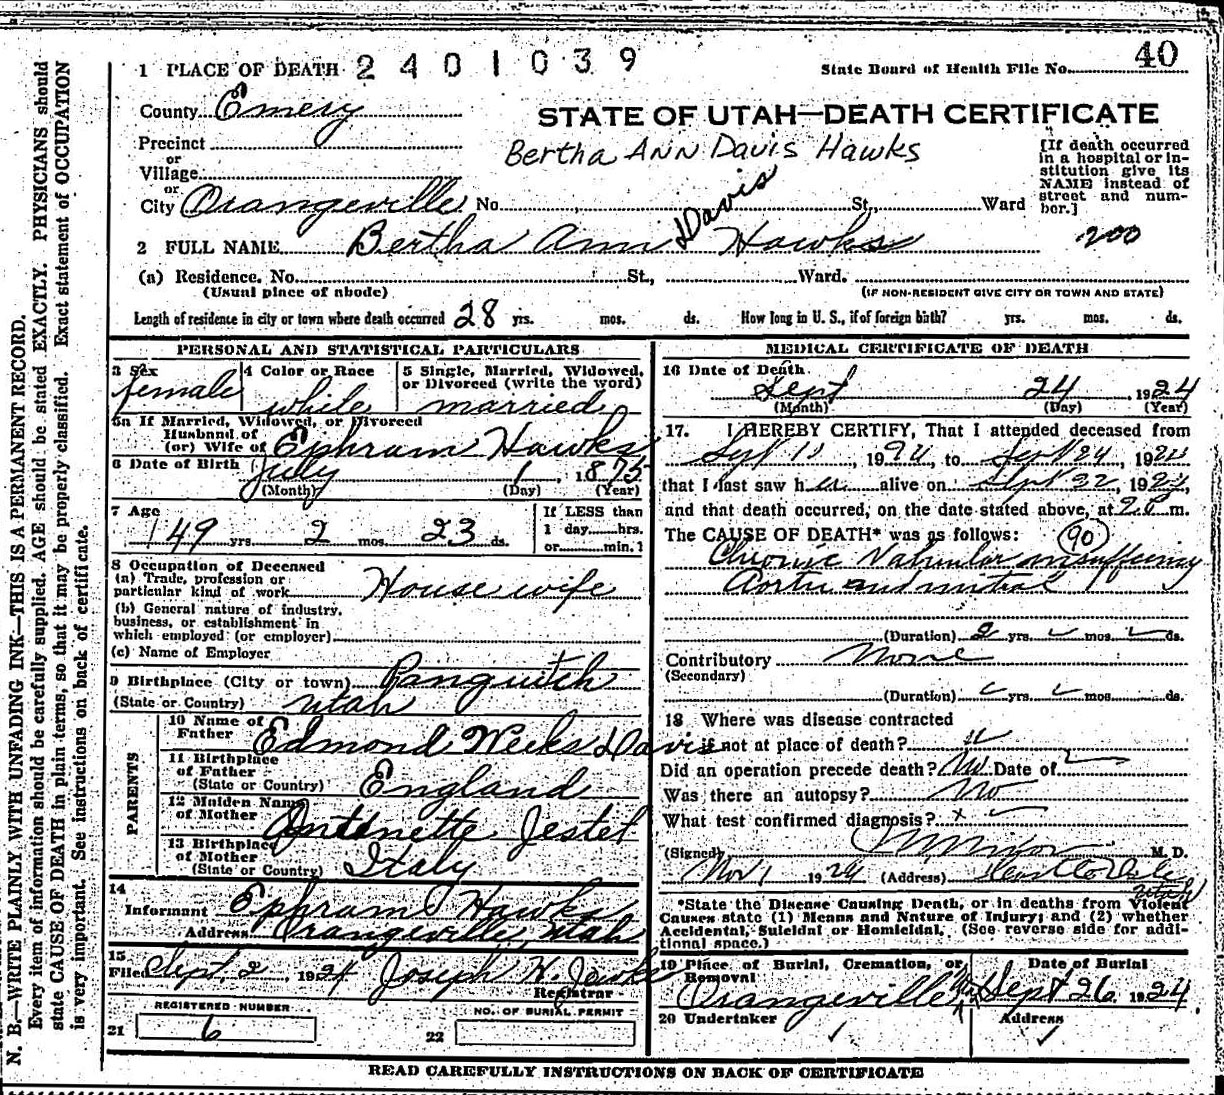 N. B.—WRITE PLAINLY WITH UNFADING INK—THIS IS A PERMANENT RECORD.
Every item of information should be carefully supplied. AGE should be stated EXACTLY. PHYSICIANS should
state CAUSE OF DEATH in plain terms, so that it may be properly classified. Exact statement of OCCUPATION
is very important. See instructions on back of certificate.
1 PLACE OF DEATH 2401039
State Board of Health File No. 40
County Emery
STATE OF UTAH—DEATH CERTIFICATE
Precinct
or
Village
or
City Orangeville No. St., Ward
Bertha Ann Davis Hawks
[If death occurred
in a hospital or in-
stitution give its
NAME instead of
street and num-
ber.]
2 FULL NAME Bertha Ann Davis Hawks
200
(a) Residence. No. St., Ward.
(Usual place of abode)
(IF NON-RESIDENT GIVE CITY OR TOWN AND STATE)
Length of residence in city or town where death occurred 28 yrs. mos. ds. How long in U. S., if of foreign birth? yrs. mos. ds.
PERSONAL AND STATISTICAL PARTICULARS
3 Sex
female
4 Color or Race
white
5 Single, Married, Widowed,
or Divorced (write the word)
married
5a If Married, Widowed, or Divorced
Husband of
(or) Wife of Ephram Hawks
6 Date of Birth July 1, 1875
(Month) (Day) (Year)
7 Age
49 yrs. 2 mos. 23 ds.
If LESS than
1 day hrs.
or min.
8 Occupation of Deceased
(a) Trade, profession or
particular kind of work House wife
(b) General nature of industry,
business, or establishment in
which employed (or employer)
(c) Name of Employer
9 Birthplace (City or town) Panguitch
(State or Country) Utah
PARENTS
10 Name of
Father Edmond Weeks Davis
11 Birthplace
of Father
(State or Country) England
12 Maiden Name
of Mother Antenette Jestet
13 Birthplace
of Mother
(State or Country) Italy
14
Informant Ephram Hawks
Address Orangeville, Utah
15
Filed Sept 2 1924 Joseph H.
Registrar
REGISTERED NUMBER
21 6
NO. OF BURIAL PERMIT
22
MEDICAL CERTIFICATE OF DEATH
16 Date of Death
Sept 24, 1924
(Month) (Day) (Year)
17. I HEREBY CERTIFY, That I attended deceased from
Sept 1, 1924, to Sept 24, 1924
that I last saw her alive on Sept 22, 1924,
and that death occurred, on the date stated above, at m.
The CAUSE OF DEATH* was as follows: 90
Chronic Valvular insufficiency
Aortic and mitral
(Duration) 2 yrs. mos. ds.
Contributory None
(Secondary)
(Duration) yrs. mos. ds.
18 Where was disease contracted
if not at place of death?
Did an operation precede death? No Date of
Was there an autopsy? No
What test confirmed diagnosis?
(Signed) M. D.
Nov 1 1924 (Address) Castle Dale
Utah
*State the Disease Causing Death, or in deaths from Violent
Causes state (1) Means and Nature of Injury; and (2) whether
Accidental, Suicidal or Homicidal. (See reverse side for addi-
tional space.)
19 Place of Burial, Cremation, or
Removal
Orangeville
Date of Burial
Sept 26 1924
20 Undertaker
Address
READ CAREFULLY INSTRUCTIONS ON BACK OF CERTIFICATE